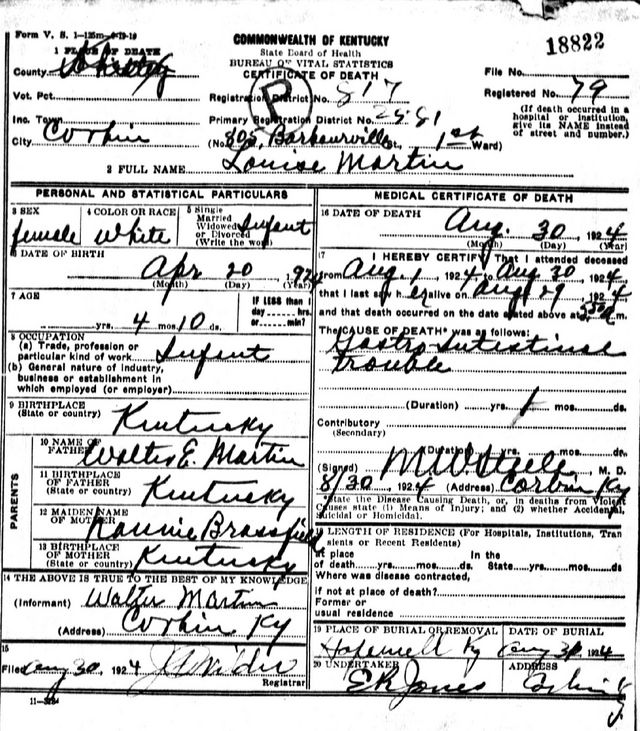 Form V. S. 1-125m-9-19-19
COMMONWEALTH OF KENTUCKY
State Board of Health
BUREAU OF VITAL STATISTICS
CERTIFICATE OF DEATH
18822
1 PLACE OF DEATH
County Whitley
File No.
Vot. Pct.
Registration District No. 817
Registered No. 79
Inc. Town
Primary Registration District No. 2581
(If death occurred in a hospital or institution, give its NAME instead of street and number.)
City Corbin
(No. 805 Barbourville St., 1st Ward)
2 FULL NAME Louise Martin
PERSONAL AND STATISTICAL PARTICULARS
3 SEX
female
4 COLOR OR RACE
White
5 Single
Married
Widowed
or Divorced
(Write the word)
Infant
6 DATE OF BIRTH
Apr 20 1924
(Month) (Day) (Year)
7 AGE
yrs. 4 mos. 10 ds.
IF LESS than 1
day hrs.
or min?
8 OCCUPATION
(a) Trade, profession or
particular kind of work Infant
(b) General nature of industry,
business or establishment in
which employed (or employer)
9 BIRTHPLACE
(State or country) Kentucky
PARENTS
10 NAME OF
FATHER Walter E. Martin
11 BIRTHPLACE
OF FATHER
(State or country) Kentucky
12 MAIDEN NAME
OF MOTHER Nannie Brassfield
13 BIRTHPLACE
OF MOTHER
(State or country) Kentucky
14 THE ABOVE IS TRUE TO THE BEST OF MY KNOWLEDGE
(Informant) Walter Martin
(Address) Corbin Ky
15
Filed Aug 30, 1924
Registrar
11-3284
MEDICAL CERTIFICATE OF DEATH
16 DATE OF DEATH
Aug. 30 1924
(Month) (Day) (Year)
17 I HEREBY CERTIFY That I attended deceased
from Aug 1, 1924 to Aug 30 1924,
that I last saw her alive on Aug 29 1924
and that death occurred on the date stated above at m.
The CAUSE OF DEATH* was as follows:
Gastro Intestinal
trouble
(Duration) yrs. 1 mos. ds.
Contributory
(Secondary)
(Duration) yrs. mos. ds.
(Signed) M. D.
8/30 1924 (Address) Corbin Ky
*State the Disease Causing Death, or, in deaths from Violent
Causes state (1) Means of Injury; and (2) whether Accidental,
Suicidal or Homicidal.
LENGTH OF RESIDENCE (For Hospitals, Institutions, Tran
sients or Recent Residents)
At place In the
of death yrs. mos. ds. State yrs. mos. ds.
Where was disease contracted,
if not at place of death?
Former or
usual residence
19 PLACE OF BURIAL OR REMOVAL
Hopewell Ky
DATE OF BURIAL
Aug 31 1924
20 UNDERTAKER
E R Jones
ADDRESS
Corbin Ky